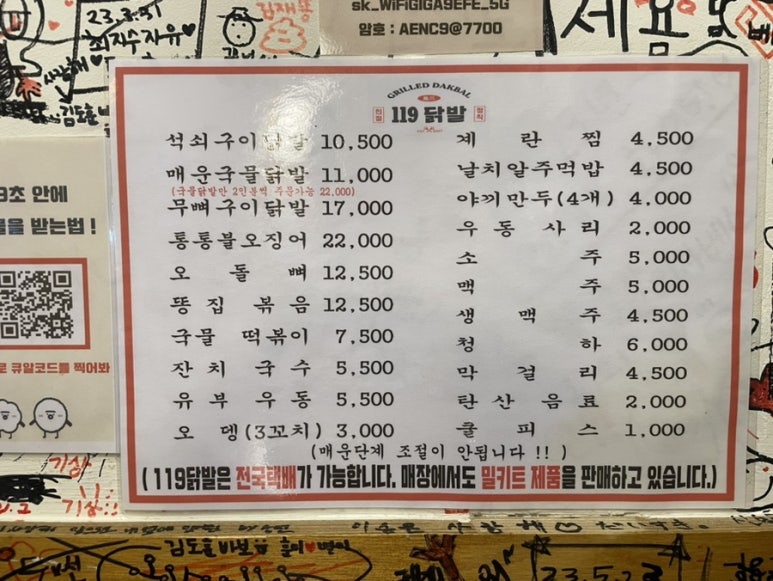 sk_WiFiGIGA9EFE_5G
암호 : AENC9@7700
23.3.31
최지수자유♥
제용
9초 안에
을 받는법!
로 큐알코드를 찍어봐
GRILLED DAKBAL
119 닭발
석쇠구이닭발 10,500
매운국물닭발 11,000
(국물닭발만 2인분씩 주문가능 22,000)
무뼈구이닭발 17,000
통통불오징어 22,000
오돌뼈 12,500
똥집볶음 12,500
국물떡볶이 7,500
잔치국수 5,500
유부우동 5,500
오뎅(3꼬치) 3,000
계란찜 4,500
날치알주먹밥 4,500
야끼만두(4개) 4,000
우동사리 2,000
소주 5,000
맥주 5,000
생맥주 4,500
청하 6,000
막걸리 4,500
탄산음료 2,000
쿨피스 1,000
(매운단계 조절이 안됩니다 !! )
(119닭발은 전국택배가 가능합니다. 매장에서도 밀키트 제품을 판매하고 있습니다.)
기상
기상
23.5.23